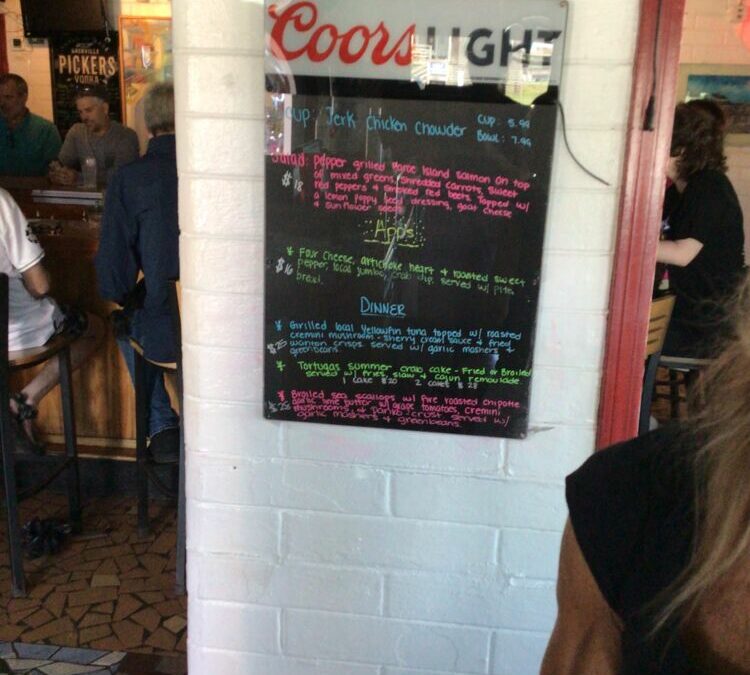 Coors LIGHT
NASHVILLE
PICKERS
VODKA
Cup: Jerk Chicken Chowder Cup: 5.99
Bowl: 7.99
Salad: Pepper grilled Faroe Island Salmon on top
of mixed greens, shredded carrots, sweet
$18 red peppers & smoked red beets. Topped w/
a lemon poppy seed dressing, goat cheese
& sunflower seeds
Apps
* Four Cheese, artichoke heart & roasted sweet
$16 pepper, local jumbo, crab dip served w/ pita
bread.
DINNER
* Girilled local Yellowfin tuna topped w/ roasted
cremini mushroom - sherry cream sauce & fried
$25 wonton crisps. served w/ garlic mashers &
greenbeans.
* Tortugas summer crab cake - Fried or Broiled
served w/ fries, slaw & cajun remoulade
1 cake $20 2 cakes $28
* Broiled sea scallops w/ fire roasted chipotle
garlic lime butter w/ grape tomatoes, cremini
$28 mushrooms, & panko crust served w/
garlic mashers & greenbeans.